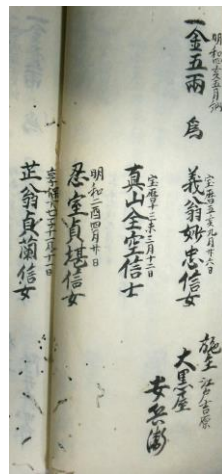 明和四亥五月納
一金五両 為
宝暦五亥九月十六日
義翁妙忠信女
宝暦十三未三月十二日
真山全空信士
明和二酉四月廿日
忍室貞堪信女
享保十七子十二月十一日
芷翁貞蘭信女
施主 江戸吉原
大黒屋
安兵衛